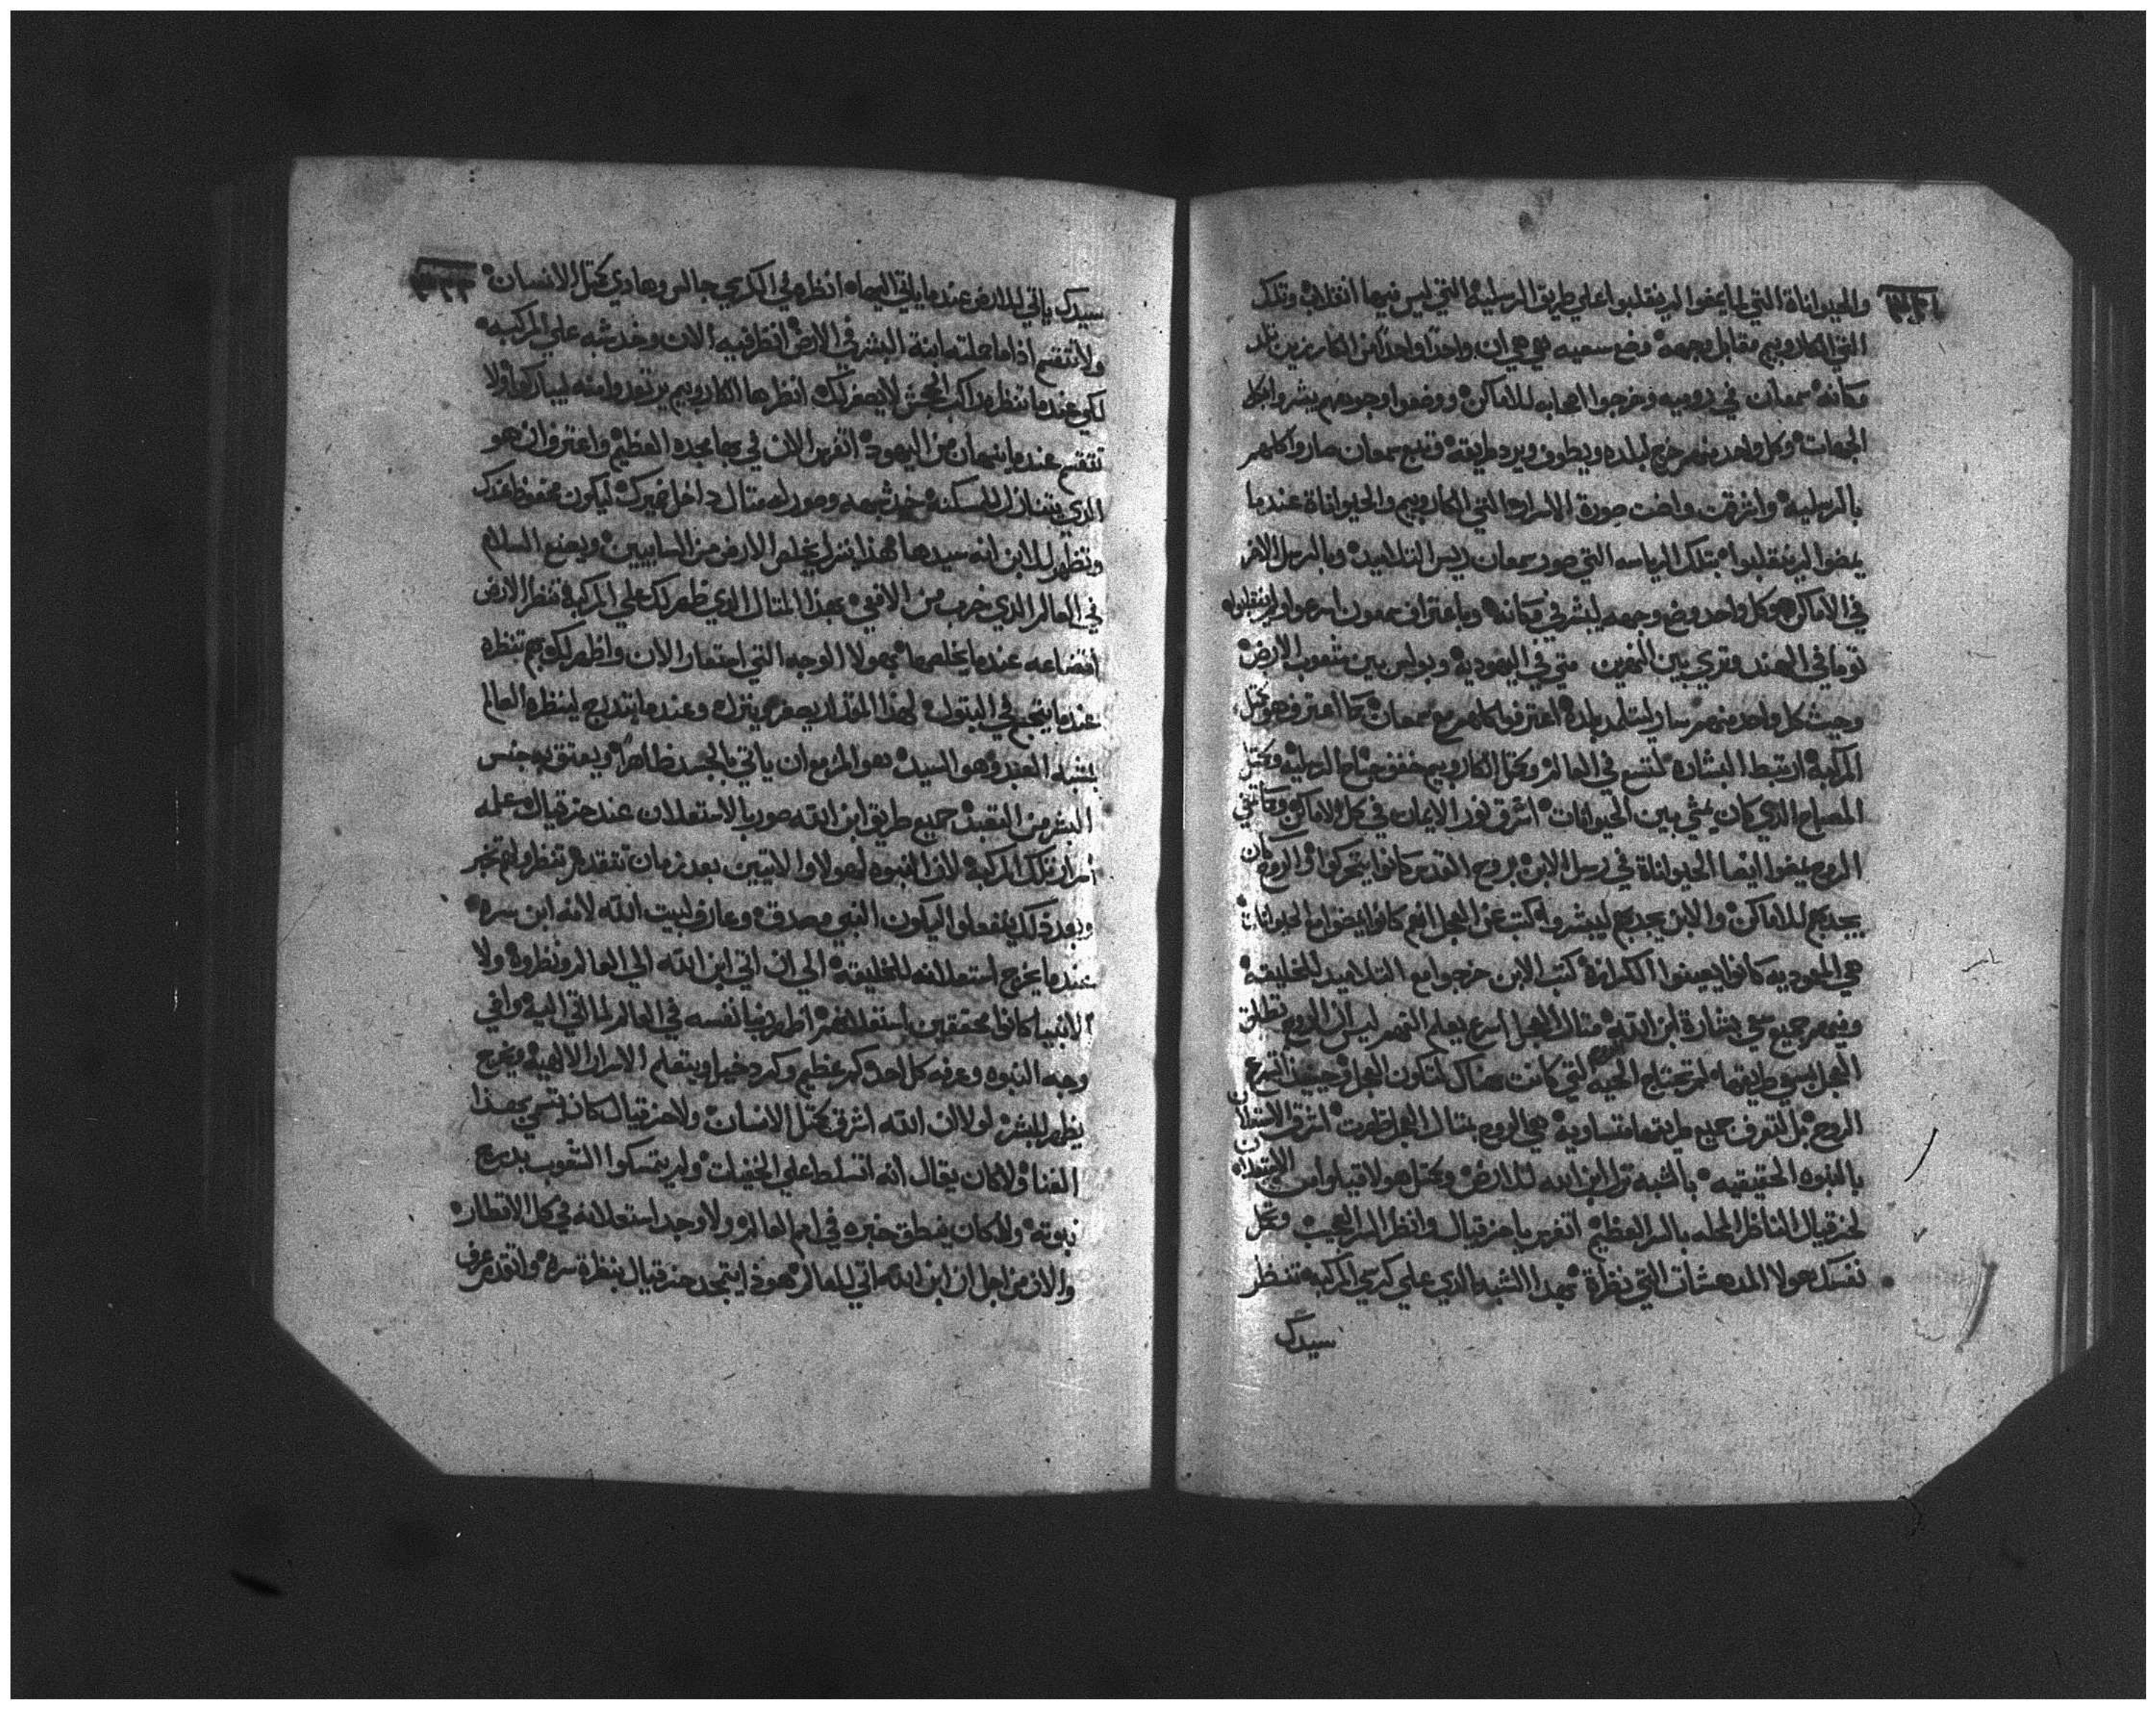 والحيواناة التي لما يمضوا لم ينقلبوا علي طريق الرسلية التي ليس فيها انقلاب وتلك
التي الكاروبيم مقابل وجهه وضع سعيه هي هي ان واحدًا واحدًا من الكارزين
مكانه سمعان في روميه وخرجوا اصحابه للاماكن ووضعوا وجوههم يبشروا
الجهات وكل واحد منهم خرج لبلده ويطوف ويرد طايفته وتبع سمعان صاروا كلهم
بالرسلية واشرقت واضت صورة الاسرار التي الكاروبيم والحيواناة عندما
يمضوا لم ينقلبوا بتلك الرياسه التي صور سمعان ريس التلاميد وبالرسل الاخر
في الاماكن وكل واحد وضع وجهه ليبشر في مكانه وباعتراف سمعون اسرعوا ولم ينقلبوا
توما في الهند وتري بين النهرين متي في اليهودية وبولس بين شعوب الارض
وحيث كل واحد منهم سار ليتلمد بلدة اعترفوا كلهم مع سمعان كما اعترف هو بمثل
المركبة ارتبط البشاره لتتسع في العالم وبمثل الكاروبيم خفق جناح الرسلية وبمثل
المصباح الذي كان يمشي بين الحيوانات اشرق نور الايمان في كل الاماكن وكما تمشي
الروح يمضوا ايضا الحيواناة في رسل الابن بروح القدس كانوا يتحركوا والروح كان
يجدبهم للاماكن والابن يجدبهم ليبشروا كتب عن العجل انهم كانوا يمضوا مع الحيوانات
هي المعوديه كانوا يعينوا الكرازة كتب الابن خرجوا مع التلاميد للخليقة
ومنهم جميع شي بشارة ابن الله مثال العجل اسرع يعلم النهم ليس ان الروح تطلق
العجل بسبي طريقها لم تحتاج الحيه الروح التي كانت هناك لتكون العجل حينيذ اتسرع
الروح بل لتعرف جميع طريقها متساوية هي الروح بمثال العجل ظهرت اشرق الاستعلان
بالنبوه الحقيقيه بالشبه نزل ابن الله للارض وبمثل هولا قيلوا من الاستعلان
لحزقيال الناظر الجله بالسر العظيم اتفرس يا حزقيال وانظر السر العجيب وتمل
نفسك هولا المدهشات التي نظرة بهدا الشبه الذي علي كرسي المركبه تنظر
سيدك
سيدك ياتي للارض عندما ياتي اليهاه انظر في الكرسي جالس وهادي كمثل الانسان
ولا تنقسم اذا ما حملته ابنة البشر في الارض انظر فيه الان وخد شبه علي المركبه
لكي عندما تنظره راكب الجحش لا يصغر لك انظر ها الكاروبيم يرتعد وامنه ليباركوا ولا
تنقسم عندما ينهان من اليهود اتفرس الان في بها مجده العظيم واعترف ان هو
الذي يتنازل للمسكنه خد شبهه وصور له مثال داخل ضميرك ليكون محفوظ عندك
وتظهر للابن انه سيدها هذا ينزل يخلص الارض من السابيين ويصنع السلام
في العالم الذي خرب من الافعي بهذا المثال الذي ظهر لك علي المركبة تنظر الارض
اتضاعه عندما يخلصها بهولا الوجه التي احتقار الان واظهر لك بهم تنظره
عندما يضجع في البتول لهذا المقدار يصغر ينزل وعندما يتدرج لينظره العالم
بشبه العبد وهو السيد هو المزمع ان ياتي بالجسد ظاهرًا ويعتق به جنس
البشر من التعبد جميع طريق ابن الله صور بالاستعلان عند حزقيال علمه
اسرار تلك المركبة لان النبوه لهولا والاتيين بعد زمان تفتقد وتنظر ولهم تخبر
وبعد ذلك يفعلوا ليكون النبي مصدق وعارف لبيت الله لانه ابن سره
عندما يخرج استعلانه للخليقة الي ان اتي ابن الله الي العالم ونظروه ولا
الانبيا كانوا محققين باستعلانهم اظهر ربنا نفسه في العالم لما اتي اليه وافي
وجه النبوه وعرفه كل احد كم عظيم وكم دخيل وبتعلم الاسرار الالهية يخرج
يظهر للبشر لولا ان الله اشرق كمثل الانسان ولا حزقيال كان يتسمي بهذا
الفنا ولا كان يقال انه اتسلط علي الخفيات ولم يتمسكوا الشعوب بدرج
نبوته ولا كان ينطق خبره في امم العالم ولا وجد استعلانه في كل الاقطار
والان من اجل ان ابن الله اتي للعالم هوذا يتمجد حزقيال بنظرة سره وانتدم عرف